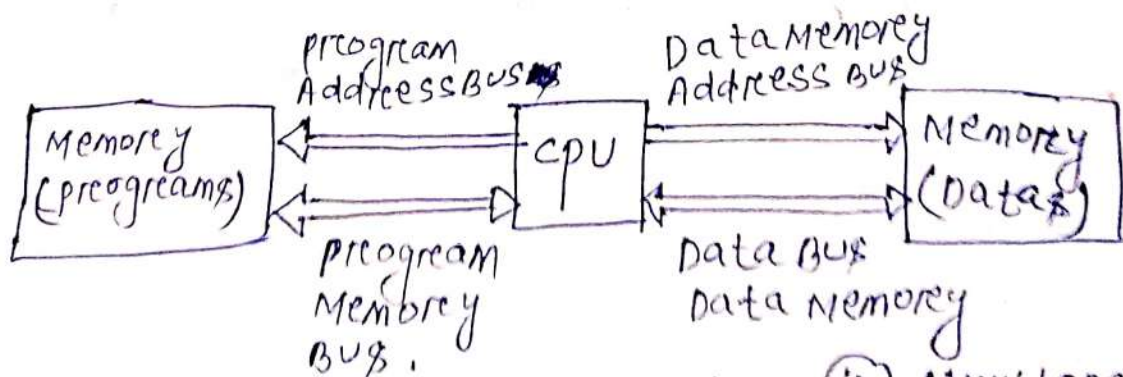 Program
Address Bus
Data Memory
Address Bus
Memory
(programs)
CPU
Memory
(Datas)
Program
Memory
Bus.
Data Bus
Data Memory